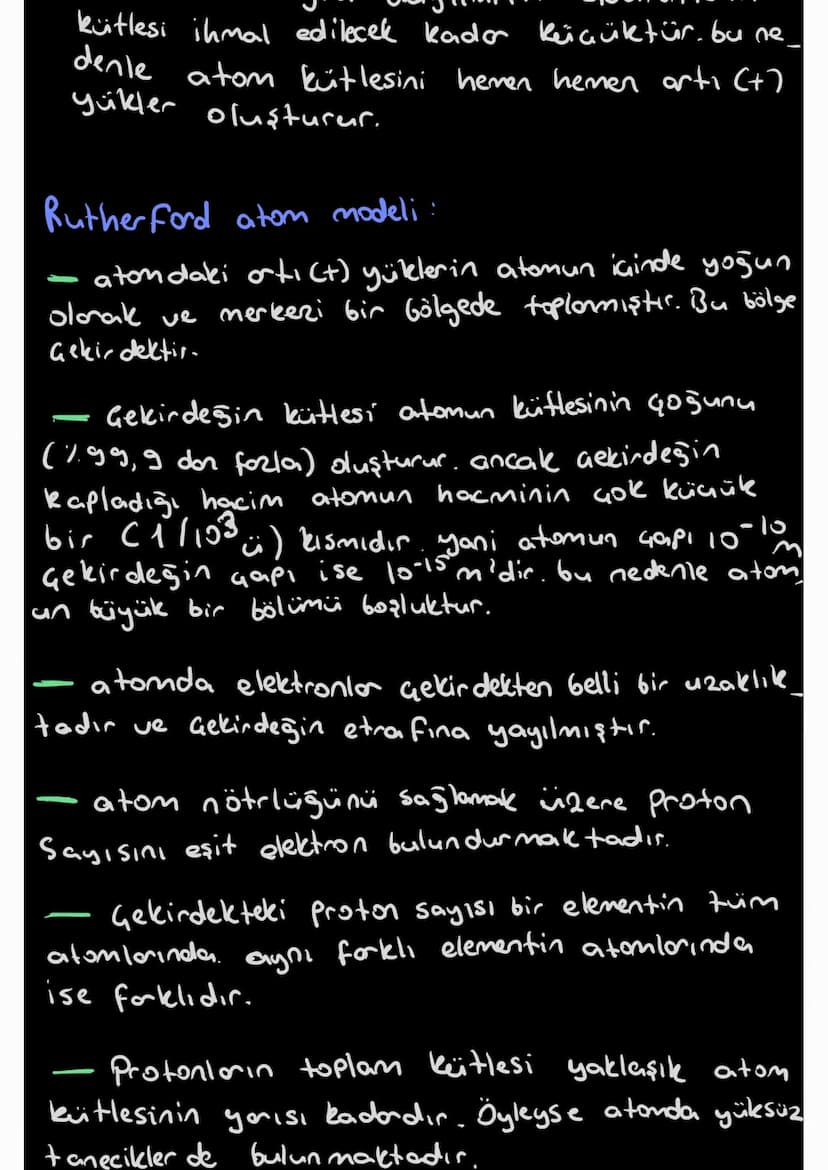 kütlesi ihmal edilecek kadar küçüktür. bu ne_
denle atom kütlesini hemen hemen artı (+)
yükler oluşturur.
Rutherford atom modeli:
— atomdaki artı (+) yüklerin atomun içinde yoğun
olarak ve merkezi bir bölgede toplanmıştır. Bu bölge
çekirdektir.
— Çekirdeğin kütlesi atomun kütlesinin çoğunu
(%99,9 dan fazla) oluşturur. ancak çekirdeğin
kapladığı hacim atomun hacminin çok küçük
bir (1/10³ ü) kısmıdır. yani atomun çapı 10⁻¹⁰ m
Çekirdeğin çapı ise 10⁻¹⁵ m'dir. bu nedenle atom_
un büyük bir bölümü boşluktur.
— atomda elektronlar çekirdekten belli bir uzaklık_
tadır ve çekirdeğin etrafına yayılmıştır.
— atom nötrlüğünü sağlamak üzere proton
Sayısını eşit elektron bulundurmaktadır.
— Çekirdekteki proton sayısı bir elementin tüm
atomlarında. aynı farklı elementin atomlarında
ise farklıdır.
— Protonların toplam kütlesi yaklaşık atom
kütlesinin yarısı kadardır. Öyleyse atomda yüksüz
tanecikler de bulunmaktadır.